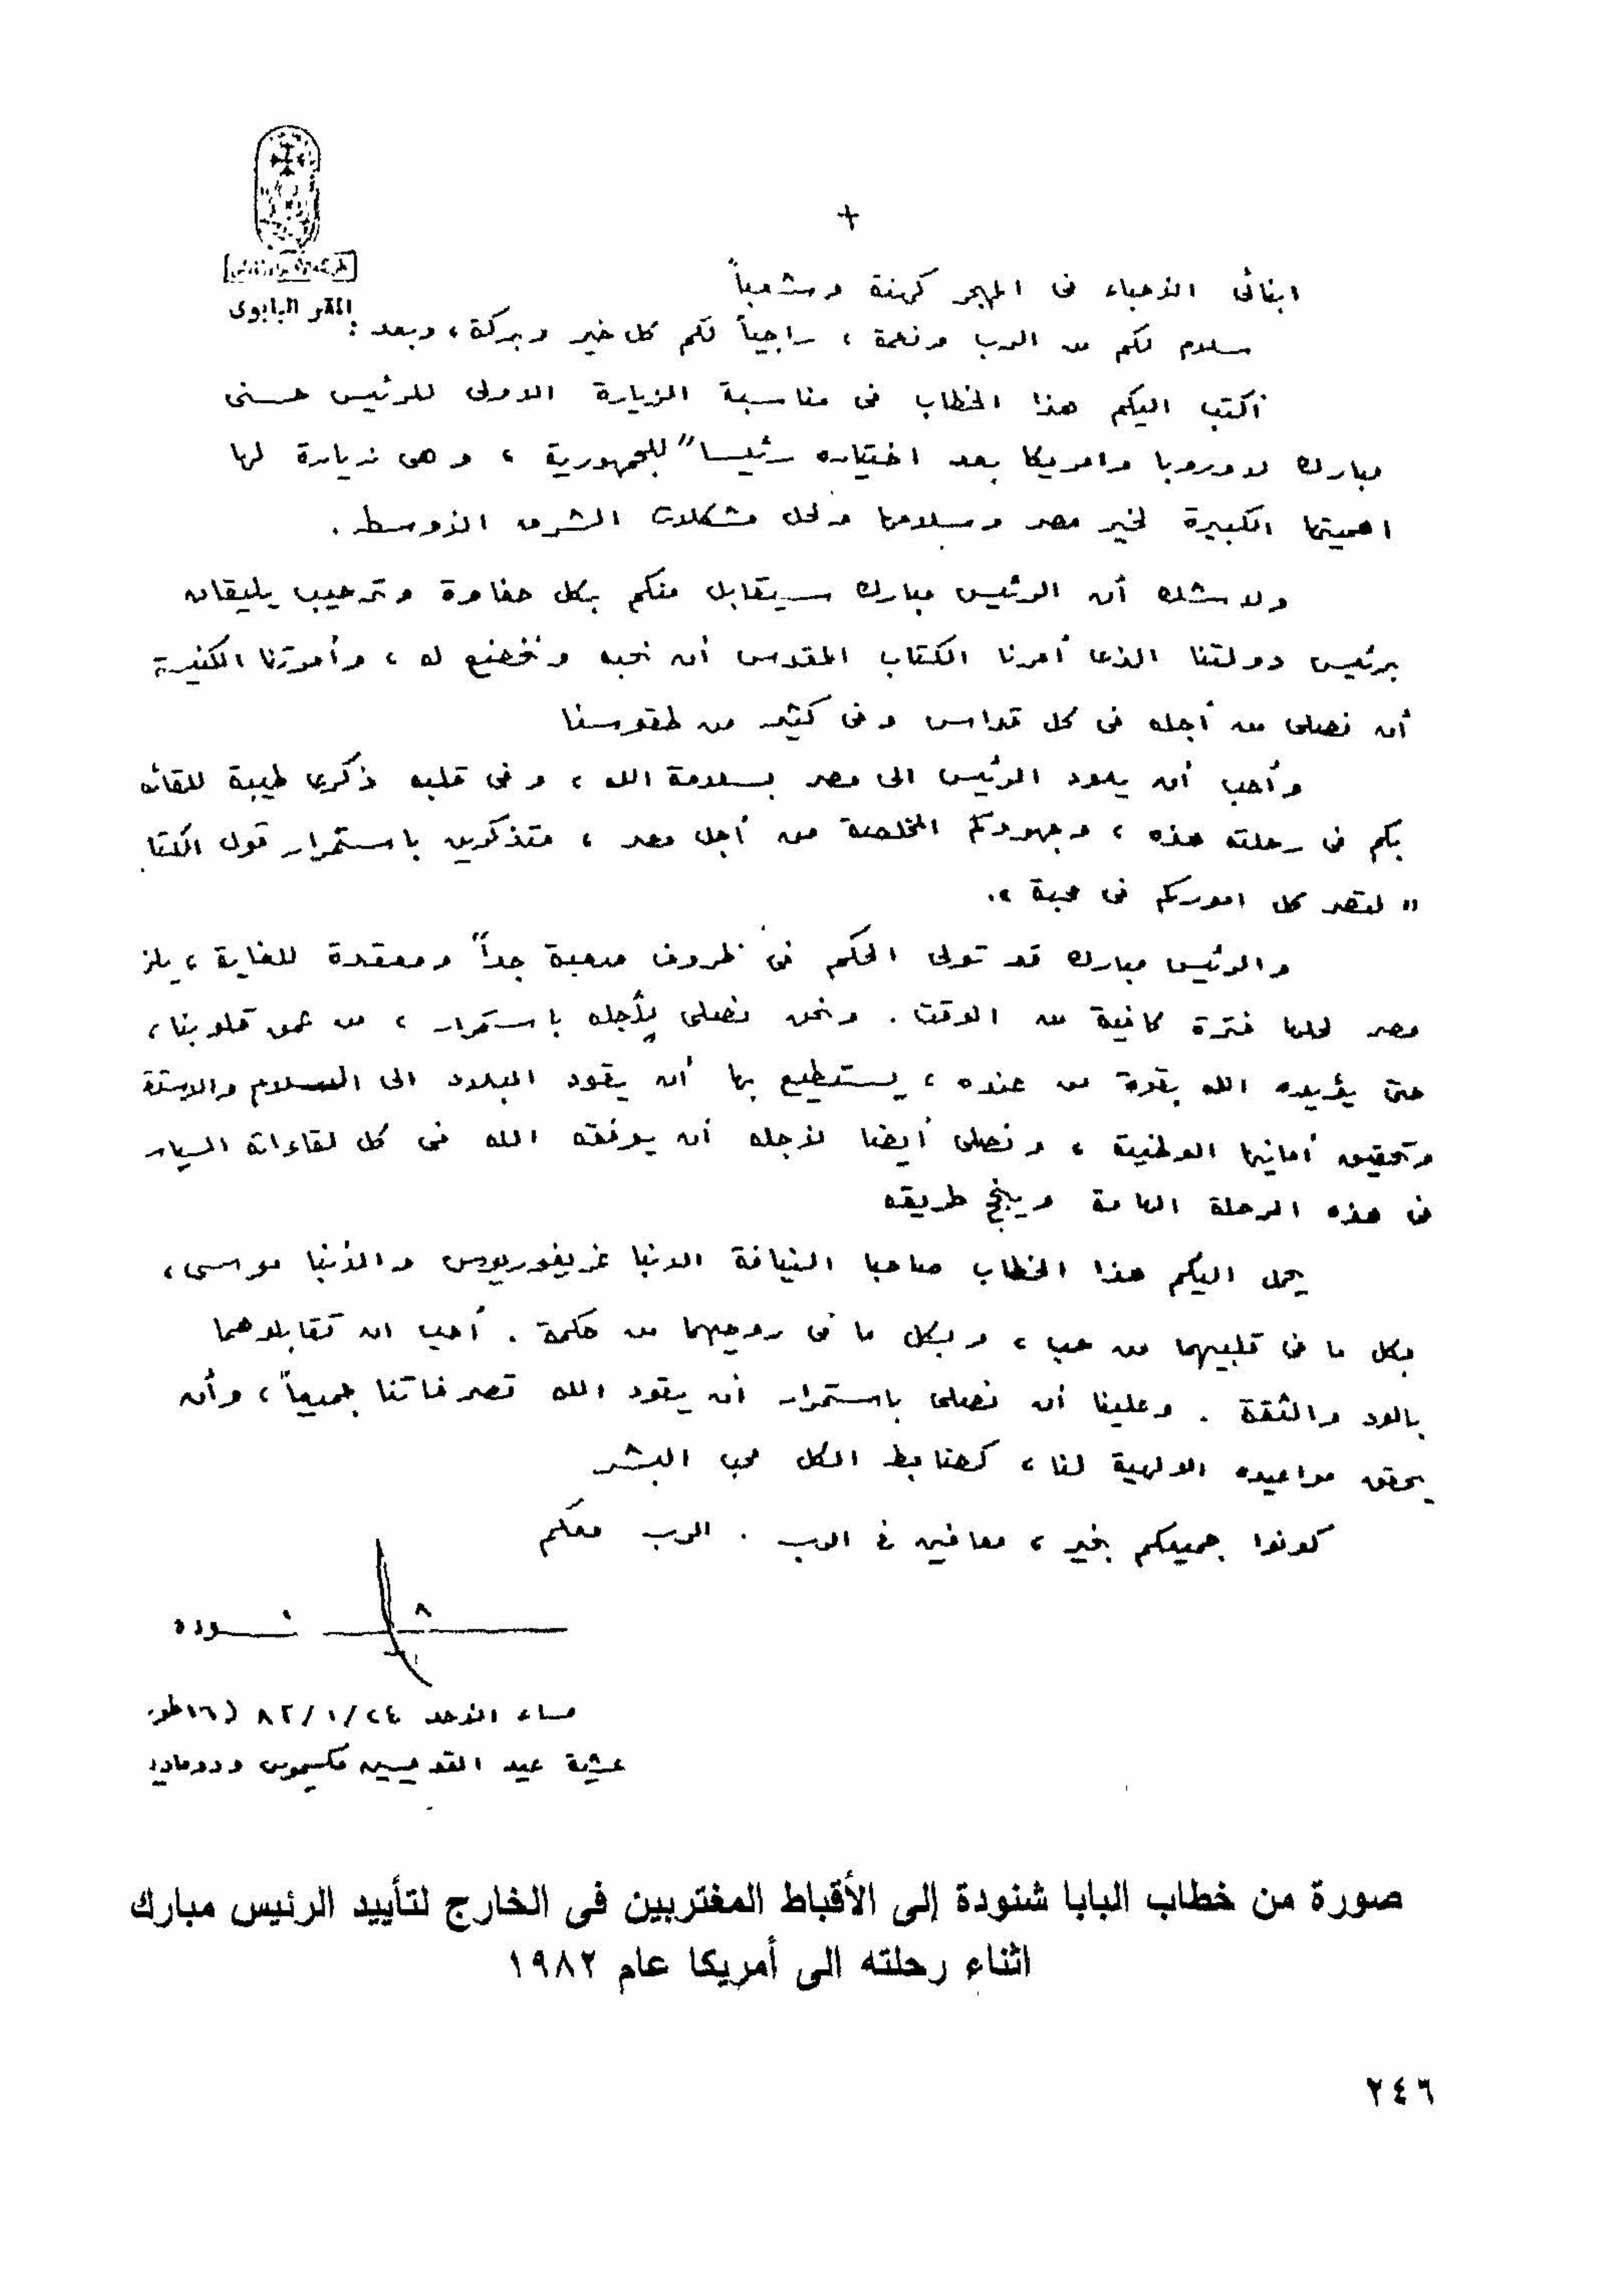 +
المقر البابوى
ابنائى الأحباء فى المهجر كهنة وشعباً
سلام لكم من الرب ونعمة ، راجياً لكم كل خير وبركة ، وبعد :
أكتب اليكم هذا الخطاب فى مناسبة الزيارة الاولى للرئيس حسنى
مبارك لاوروبا وامريكا بعد اختياره رئيساً للجمهورية ، وهى زيارة لها
اهميتها الكبيرة لخير مصر وسلامها ولحل مشكلات الشرق الأوسط .
ولا شك أن الرئيس مبارك سيقابل منكم بكل حفاوة وترحيب يليقان
برئيس دولتنا الذى أمرنا الكتاب المقدس أن نحبه ونخضع له ، وأمرتنا الكنيسة
أن نصلى من أجله فى كل قداس وفى كثير من طقوسنا
وأحب أن يعود الرئيس الى مصر بسلامة الله ، وفى قلبه ذكرى طيبة للقائه
بكم فى رحلته هذه ، وجهودكم المخلصة من أجل مصر ، متذكرين باستمرار قول الكتا
" لتصر كل اموركم فى محبة ".
والرئيس مبارك قد تولى الحكم فى ظروف صعبة جداً ومعقدة للغاية ، يلز
مصر لحلها فترة كافية من الوقت . ونحن نصلى لأجله باستمرار ، من عمق قلوبنا ،
حتى يؤيده الله بقوة من عنده ، يستطيع بها أن يقود البلاد الى السلام والاستق
وتحقيق أمانيها الوطنية ، ونصلى أيضا لأجله أن يوفقه الله فى كل لقاءاته السيا
فى هذه الرحلة الهامة وينجح طريقه
يحمل اليكم هذا الخطاب صاحبا النيافة الانبا غريغوريوس والأنبا موسى ،
بكل ما فى قلبيهما من حب ، وبكل ما فى روحيهما من حكمة . أحب ان تقابلوهما
بالود والثقة . وعلينا أن نصلى باستمرار أن يقود الله تصرفاتنا جميعاً ، وأن
يحقق مواعيده الالهية لنا ، كضابط الكل محب البشر
كونوا جميعكم بخير ، معافين فى الرب . الرب معكم
شنوده
مساء الأحد ٢٤/١/٨٢ (١٦ طوب
عشية عيد القديسين مكسيموس ودوماديو
صورة من خطاب البابا شنودة إلى الأقباط المغتربين فى الخارج لتأييد الرئيس مبارك
اثناء رحلته الى أمريكا عام ١٩٨٢
٢٤٦